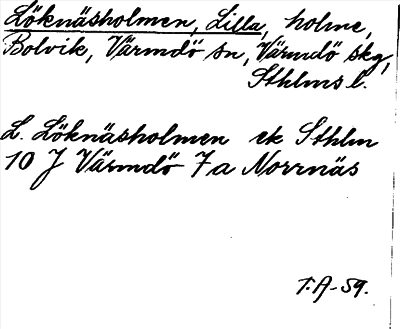 Löknäsholmen, Lilla, holme,
Bolvik, Värmdö sn, Värmdö skg,
Sthlms l.
L. Löknäsholmen ek Sthlm
10 J Värmdö 7a Norrnäs
T.A-59.